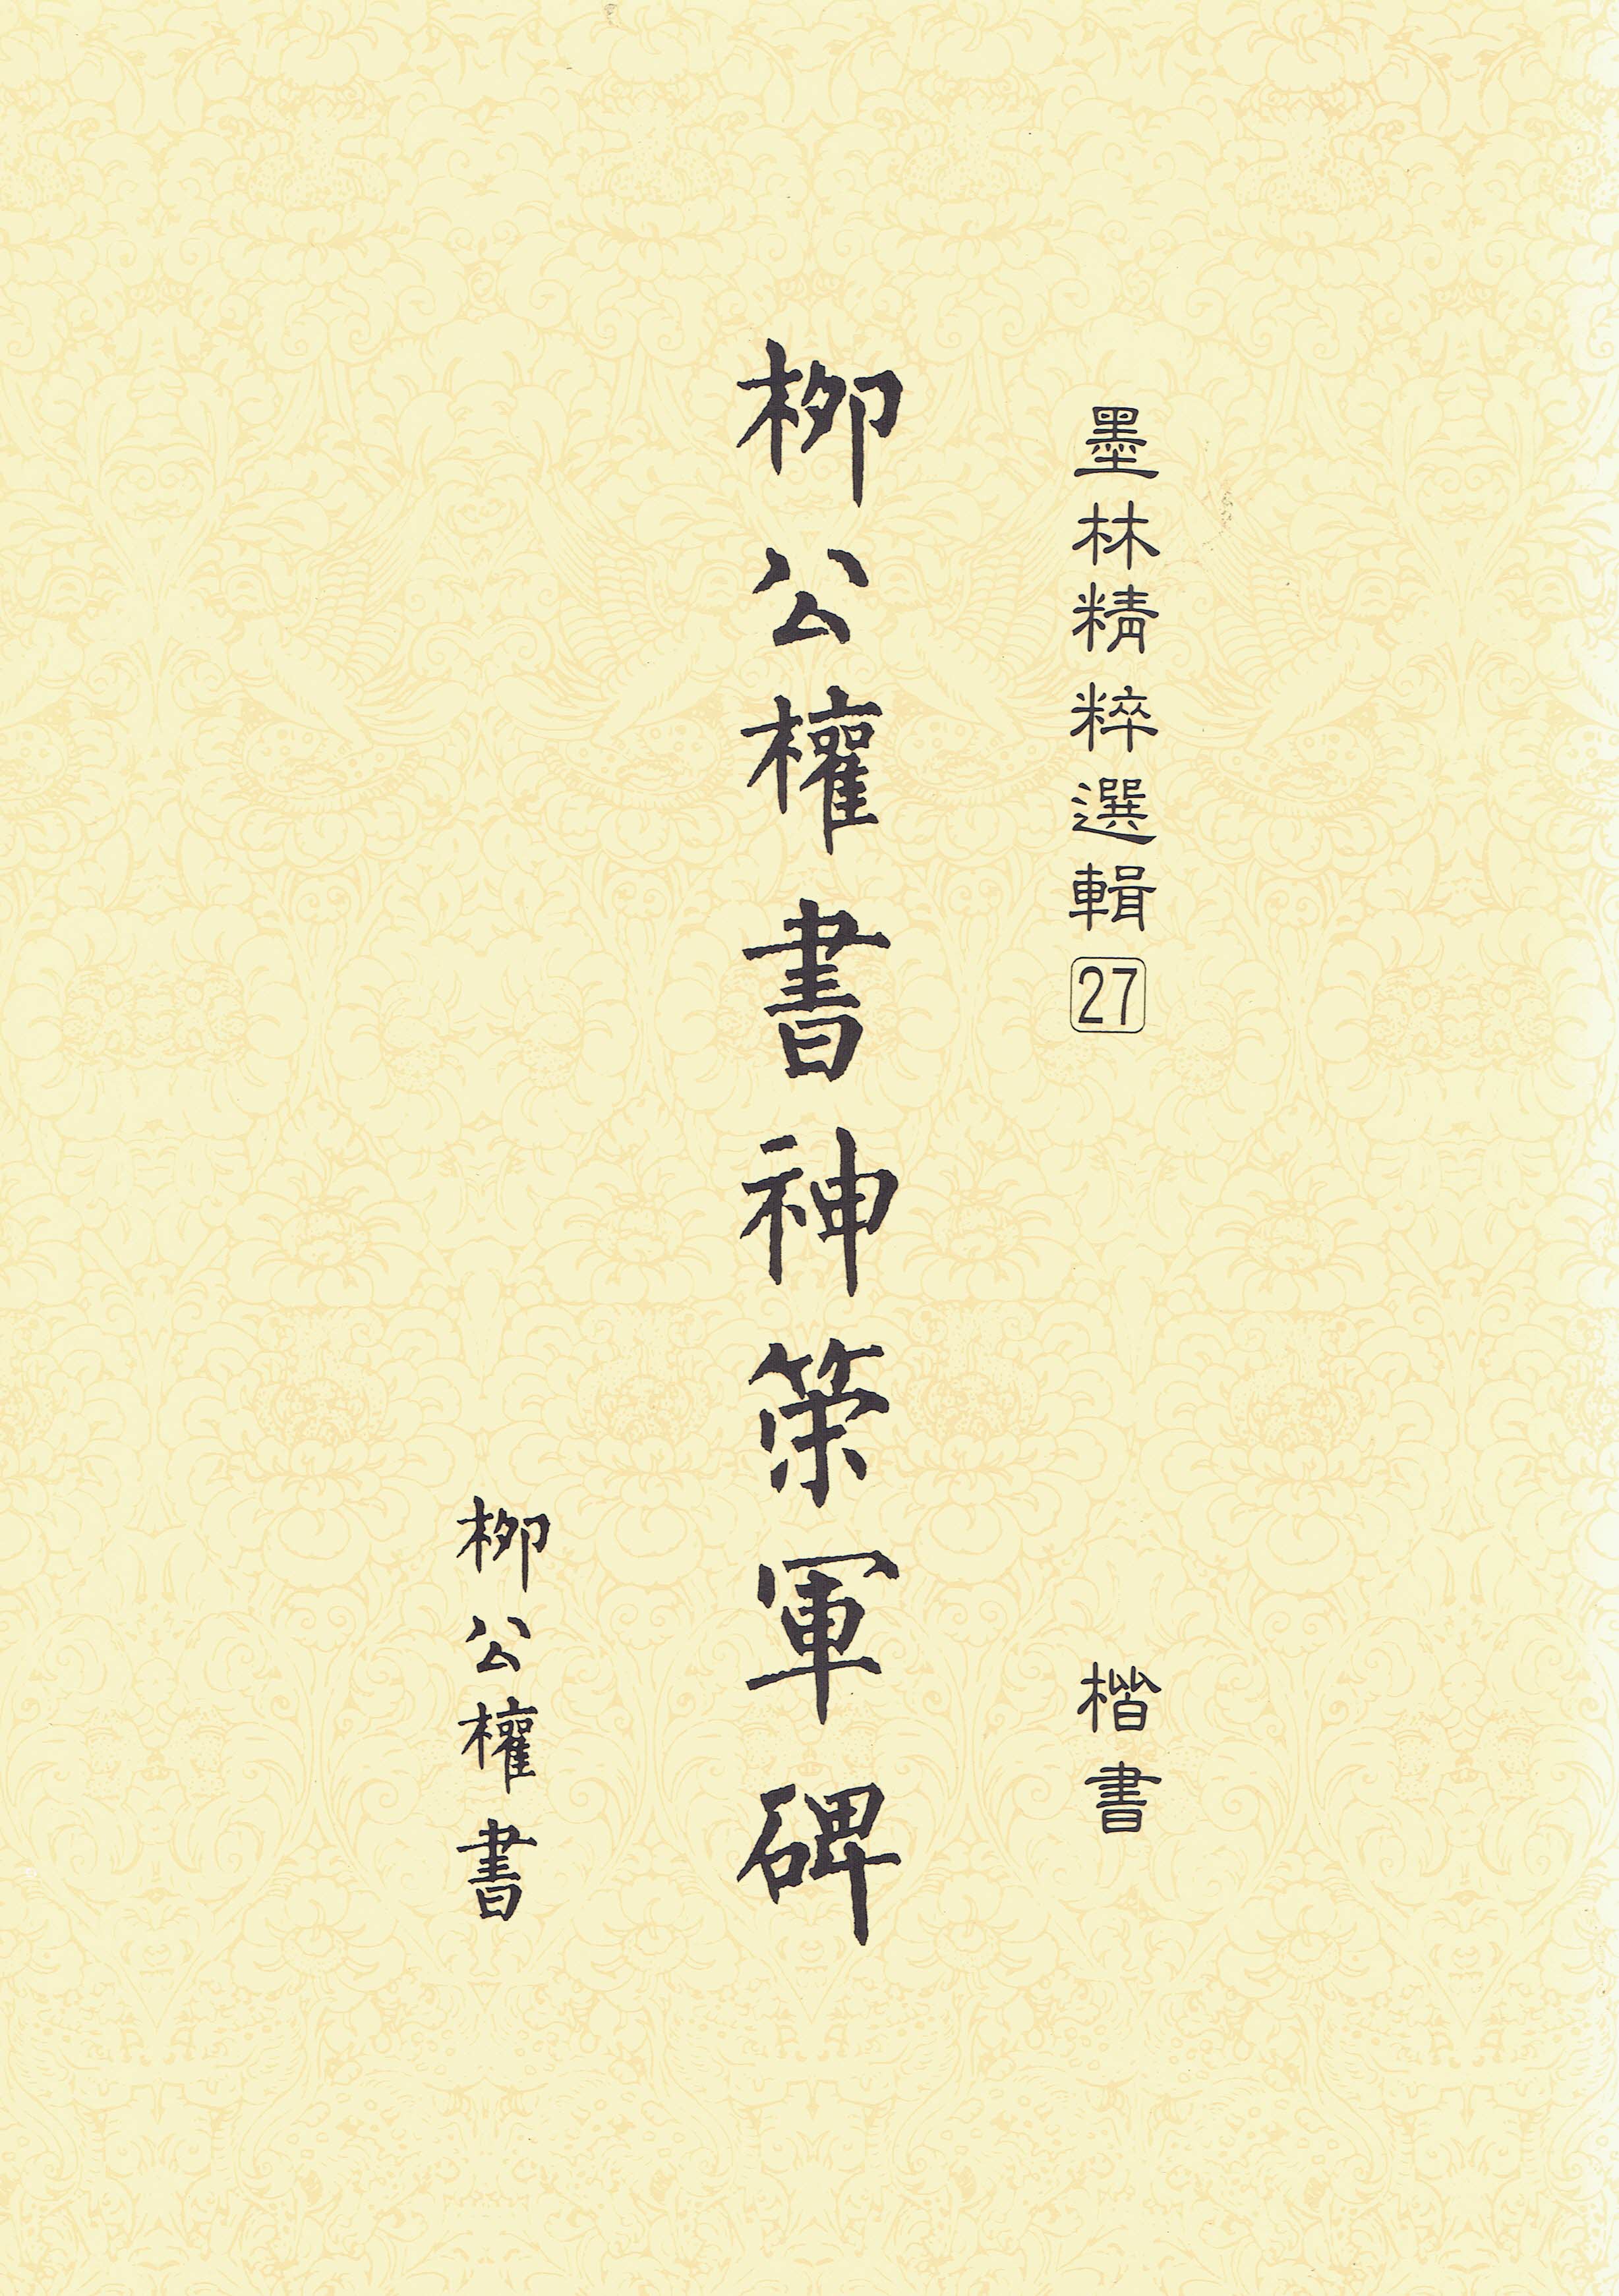 墨林精粹選輯27
楷書
柳公權書神策軍碑
柳公權書